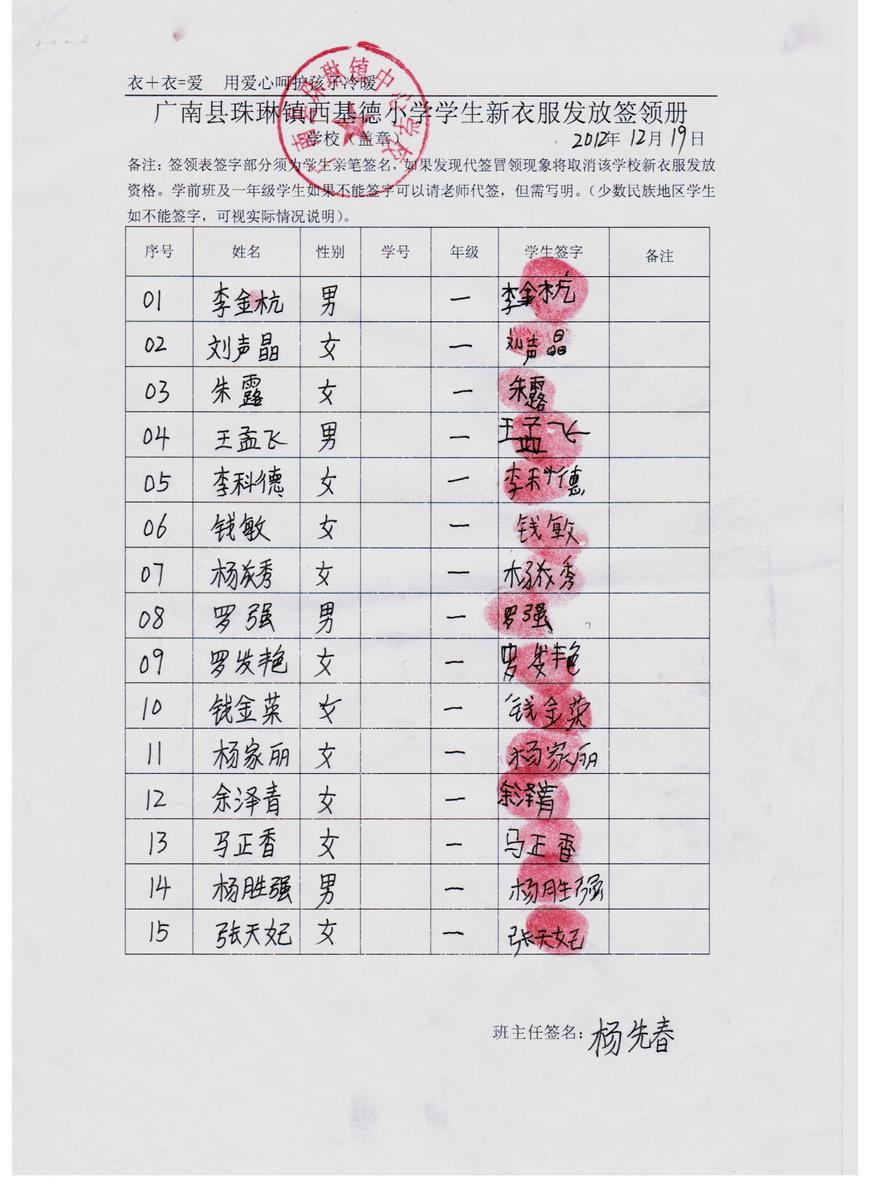 衣＋衣=爱 用爱心呵护孩子冷暖
广南县珠琳镇西基德小学学生新衣服发放签领册
学校（盖章） 2012年 12月 19日
广南县珠琳镇中心学校
备注：签领表签字部分须为学生亲笔签名，如果发现代签冒领现象将取消该学校新衣服发放
资格。学前班及一年级学生如果不能签字可以请老师代签，但需写明。（少数民族地区学生
如不能签字，可视实际情况说明）。
序号 姓名 性别 学号 年级 学生签字 备注
01 李金杭 男 一 李金杭
02 刘声晶 女 一 刘声晶
03 朱露 女 一 朱露
04 王孟飞 男 一 王孟飞
05 李科德 女 一 李科德
06 钱敏 女 一 钱敏
07 杨成秀 女 一 杨成秀
08 罗强 男 一 罗强
09 罗发艳 女 一 罗发艳
10 钱金荣 女 一 钱金荣
11 杨家丽 女 一 杨家丽
12 余泽青 女 一 余泽青
13 马正香 女 一 马正香
14 杨胜强 男 一 杨胜强
15 张天妃 女 一 张天妃
班主任签名：杨先春